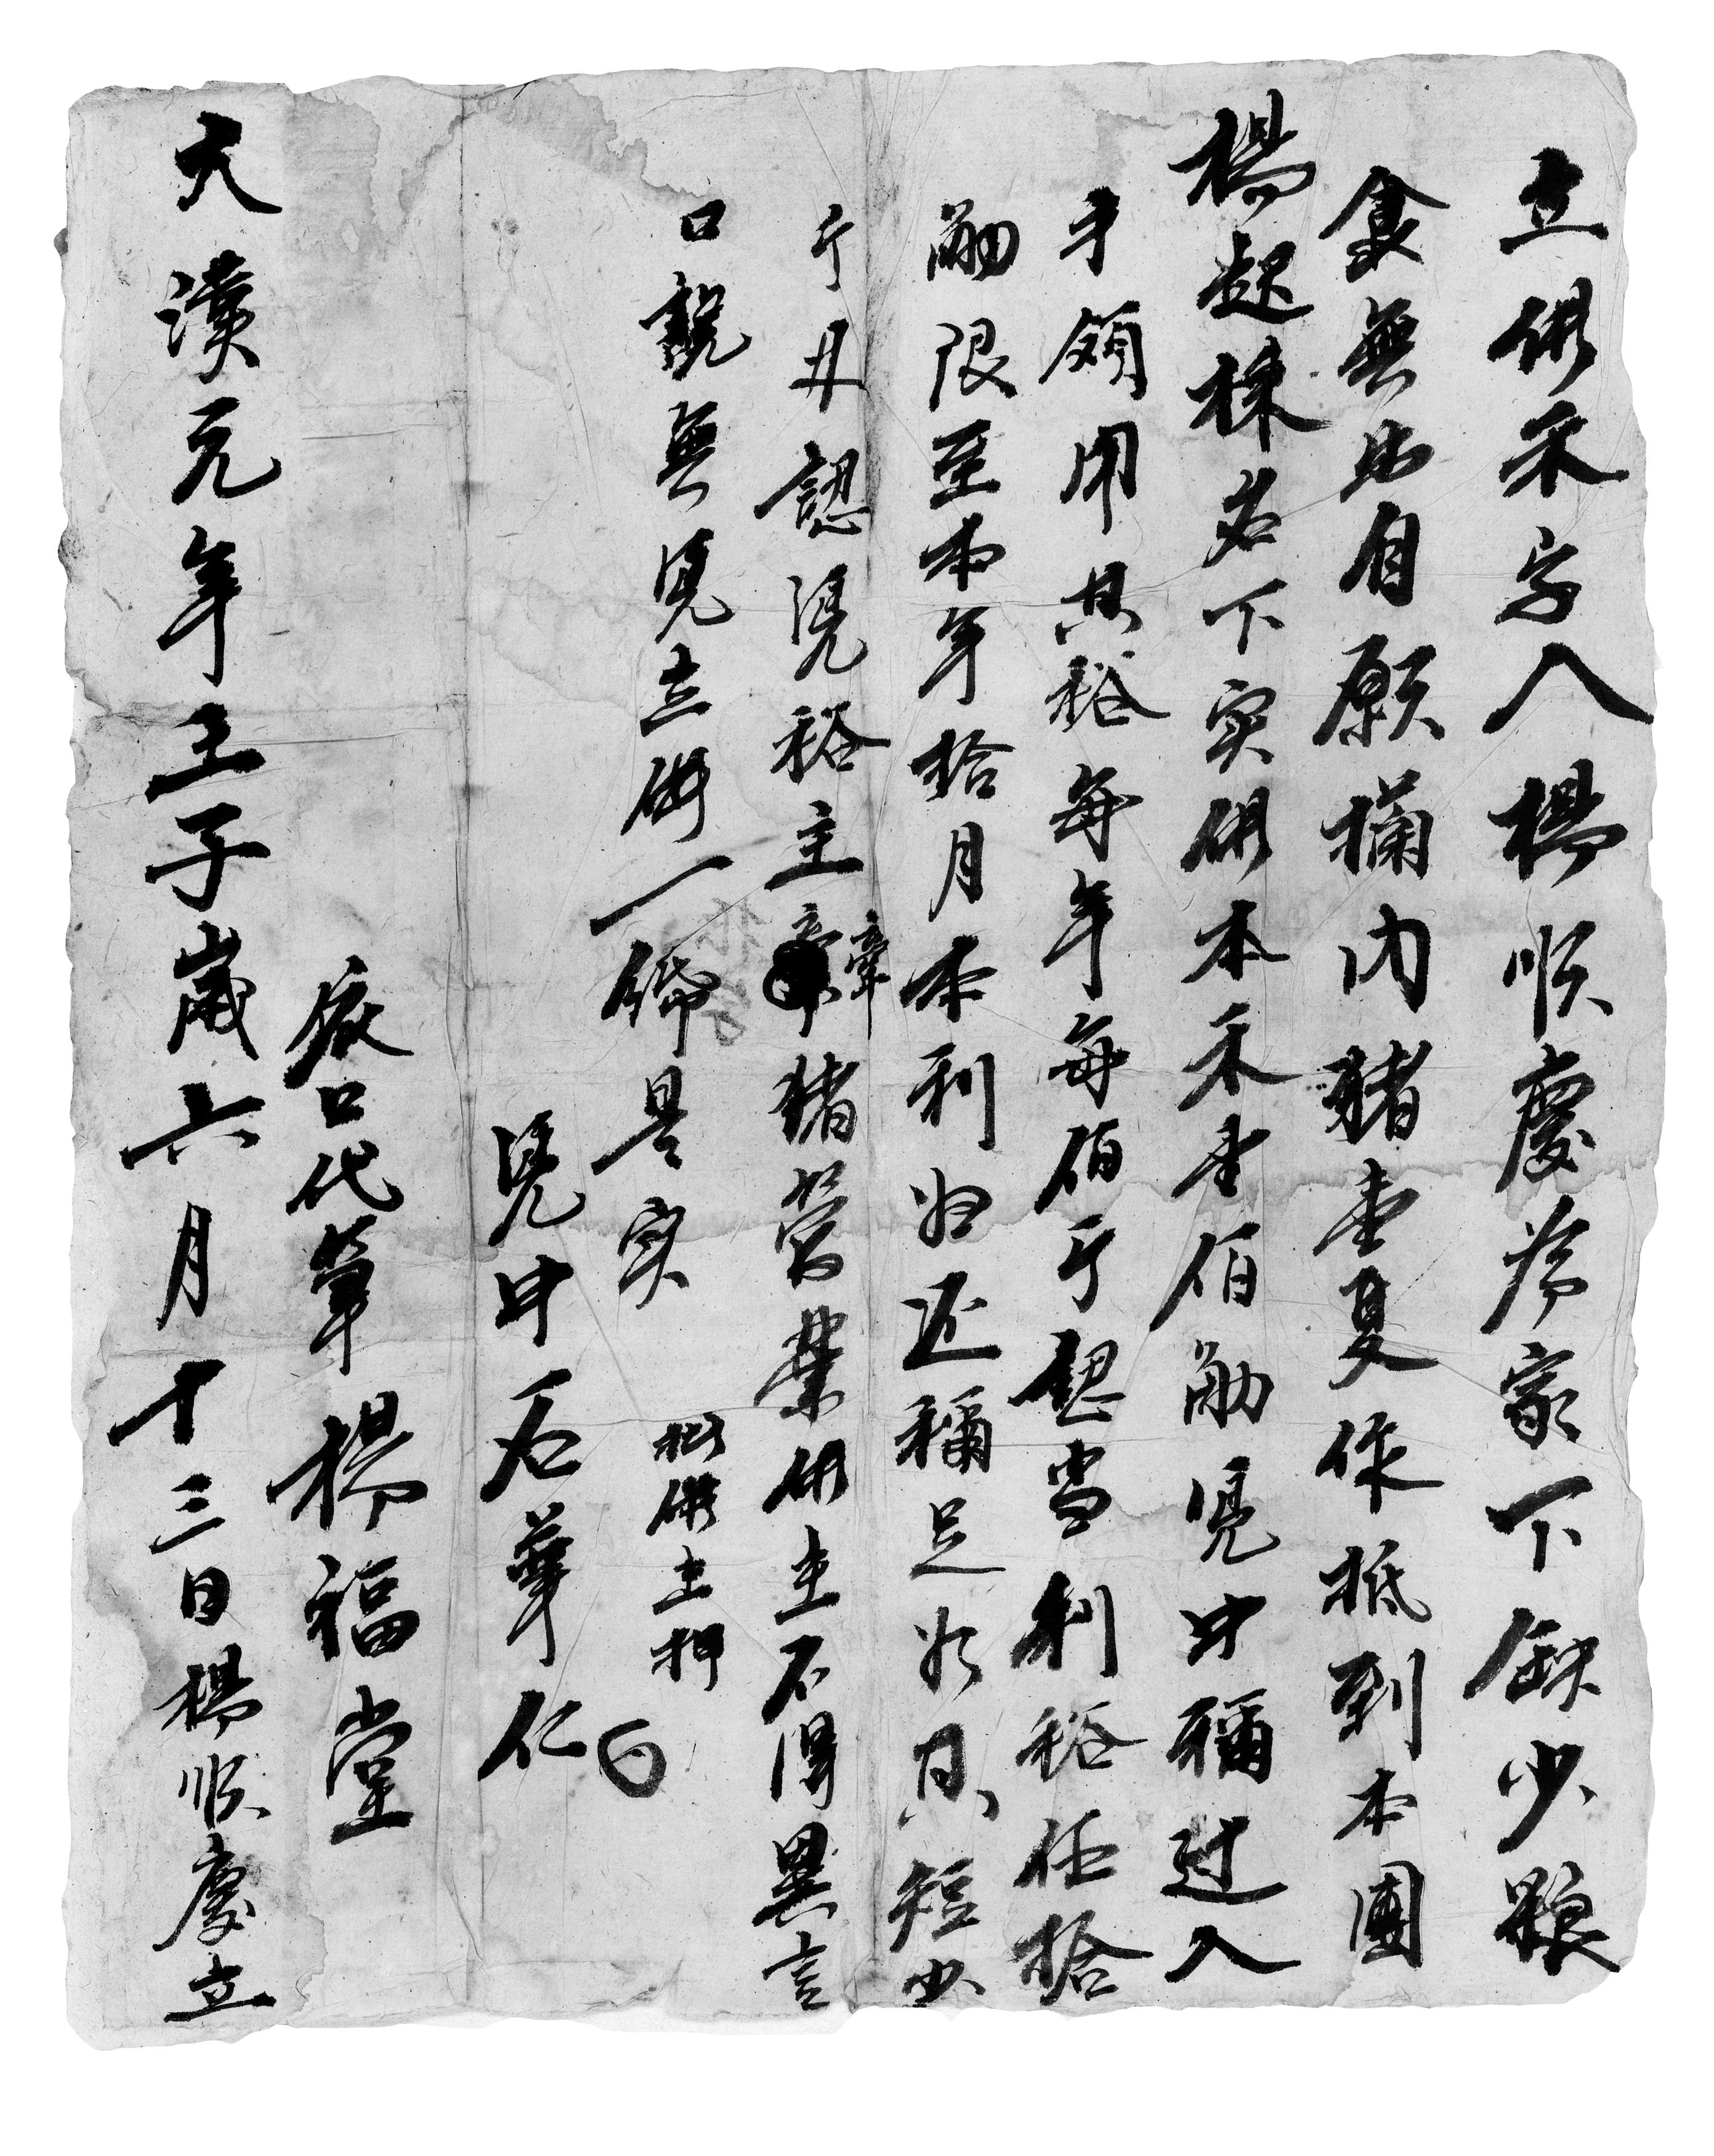 立借禾字人楊順慶為家下缺少粮
食無出自願欄内豬壹隻作抵到本團
楊起棟名下实借本禾壹佰觔凴中稱过入
手領用其穀每年每佰斤認当利穀任拾
觔限至本年拾月本利归还稱足如有短少
斤两認凴穀主牽猪管業借主不得異言
口說無凴立借一紙是实
批借主押
凴中石華仁
依口代筆楊福堂
大漢元年壬子歲六月十三日楊順慶立